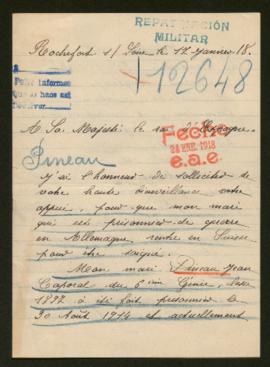 REPATRIACIÓN
MILITAR
Rochefort s/ Loire le 17 Janvier 18.
112648
Pedir informes
A Sa Majesté le roi d'Espagne.
Fecho
24 ENE. 1918
e.a.e.
Pineau
J'ai l'honneur de solliciter de
votre haute bienveillance votre
appui, pour que mon mari
qui est prisonnier de guerre
en Allemagne, rentre en Suisse
pour être soigné.
Mon mari Pineau Jean
Caporal du 6ème Génie, classe
1897 a été fait prisonnier le
30 Août 1914 et actuellement